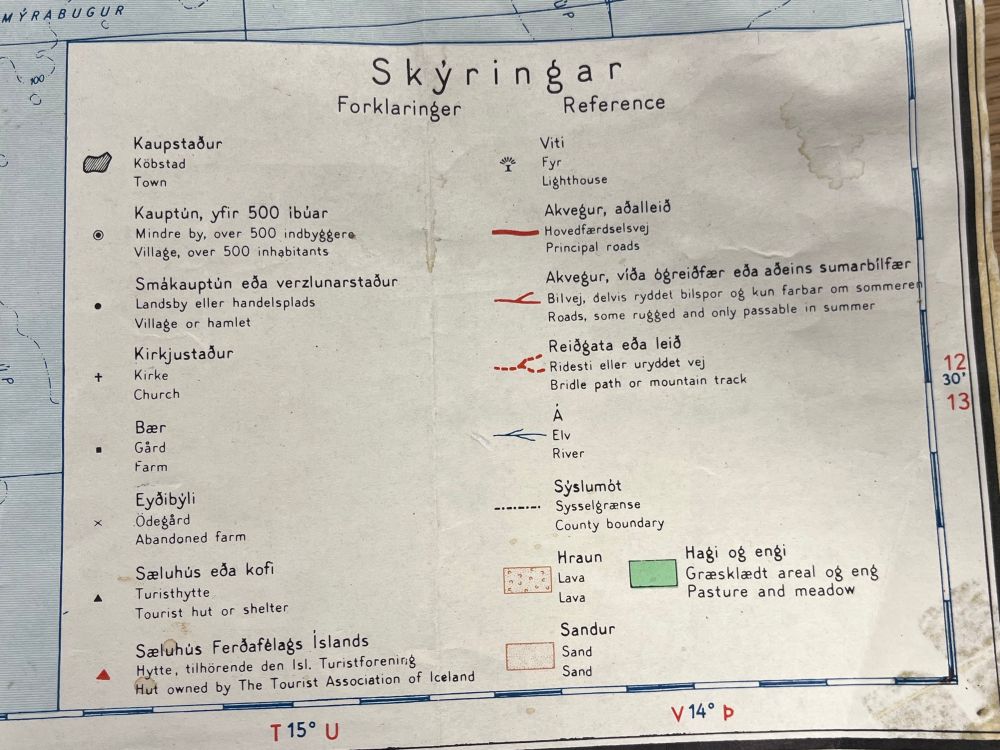 MÝRABUGUR
100
Skýringar
Forklaringer
Reference
Kaupstaður
Köbstad
Town
Kauptún, yfir 500 íbúar
Mindre by, over 500 indbyggere
Village, over 500 inhabitants
Smákauptún eða verzlunarstaður
Landsby eller handelsplads
Village or hamlet
Kirkjustaður
Kirke
Church
Bær
Gård
Farm
Eyðibýli
Ödegård
Abandoned farm
Sæluhús eða kofi
Turisthytte
Tourist hut or shelter
Sæluhús Ferðafélags Íslands
Hytte, tilhörende den Isl. Turistforening
Hut owned by The Tourist Association of Iceland
Viti
Fyr
Lighthouse
Akvegur, aðalleið
Hovedfærdselsvej
Principal roads
Akvegur, víða ógreiðfær eða aðeins sumarbílfær
Bilvej, delvis ryddet bilspor og kun farbar om sommeren
Roads, some rugged and only passable in summer
Reiðgata eða leið
Ridesti eller uryddet vej
Bridle path or mountain track
Á
Elv
River
Sýslumót
Sysselgrænse
County boundary
Hraun
Lava
Lava
Hagi og engi
Græsklædt areal og eng
Pasture and meadow
Sandur
Sand
Sand
12
30'
13
T 15° U
V 14° Þ